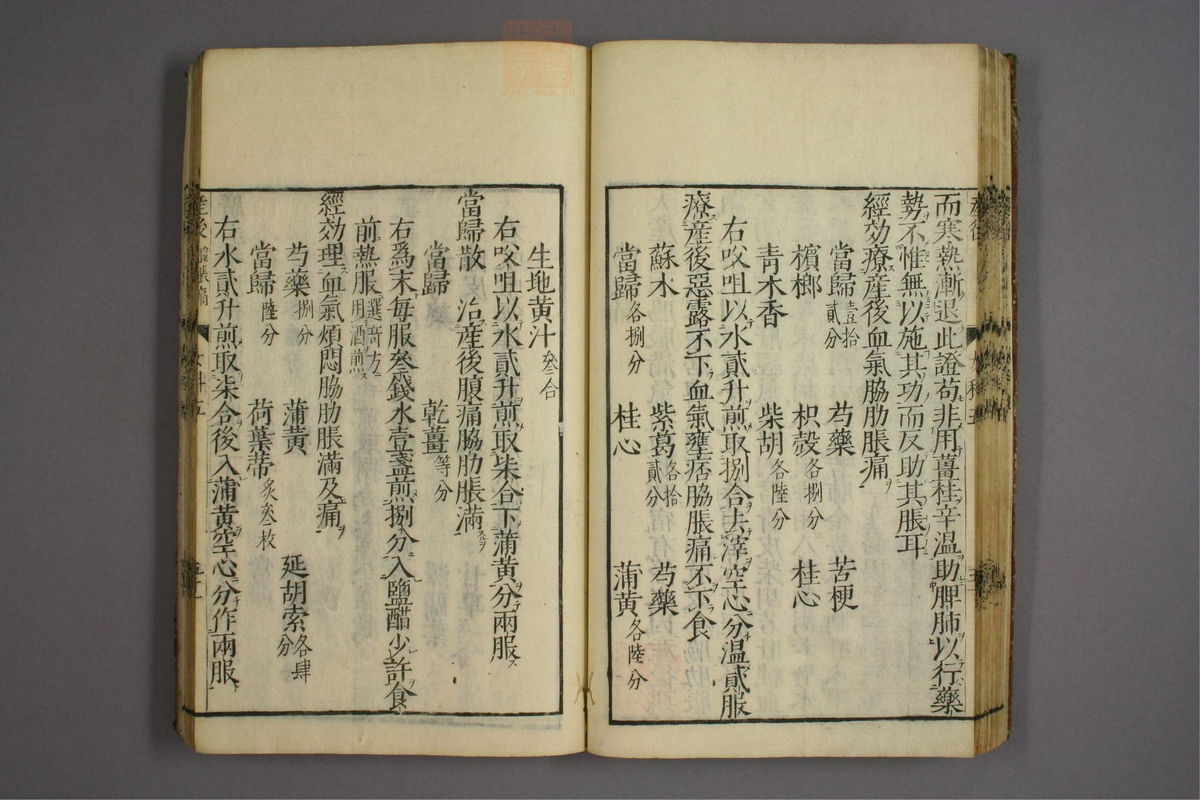 而寒熱漸退此證苟非用薑桂辛温助脾肺以行藥
勢不惟無以施其功而反助其脹耳
經効療產後血氣脇肋脹痛
當歸壹拾貳分 芍藥 苦梗
檳榔 枳殼各捌分 桂心
青木香 柴胡各陸分
右㕮咀以水貳升煎取捌合去滓空心分温貳服
療產後惡露不下血氣壅痞脇脹痛不下食
蘇木 紫葛各拾貳分 芍藥
當歸各捌分 桂心 蒲黄各陸分
生地黄汁叄合
右㕮咀以水貳升煎取柒合下蒲黄分兩服
當歸散 治產後腹痛脇肋脹滿
當歸 乾薑等分
右爲末每服叄錢水壹盞煎捌分入鹽醋少許食
前熱服選奇方用酒煎
經効理血氣煩悶脇肋脹滿及痛
芍藥捌分 蒲黄 延胡索各肆分
當歸陸分 荷葉蒂炙叄枚
右水貳升煎取柒合後入蒲黄空心分作兩服
產後